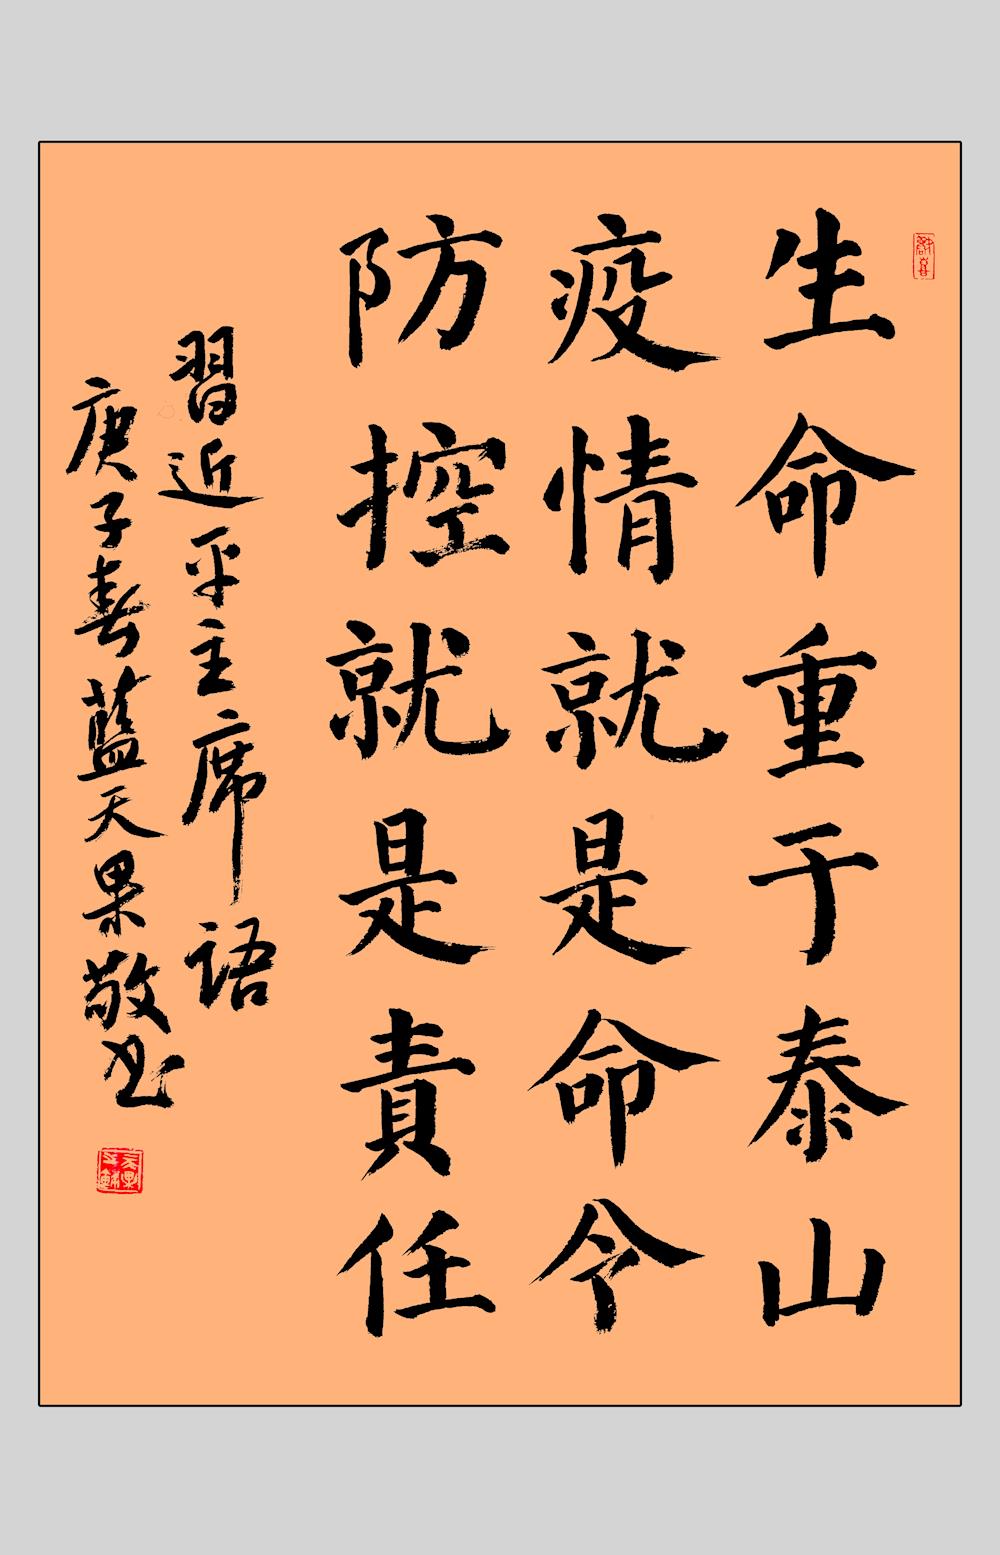 生命重于泰山
疫情就是命令
防控就是責任
習近平主席語
庚子春藍天果敬书